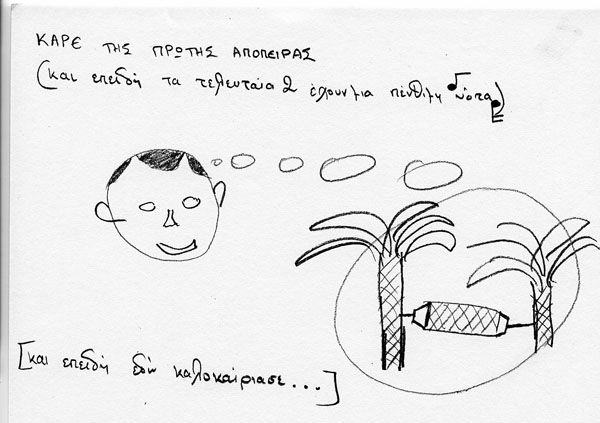 ΚΑΡΕ ΤΗΣ ΠΡΩΤΗΣ ΑΠΟΠΕΙΡΑΣ
(και επειδή τα τελευταία 2 έχουν μια πένθιμη νότα)
[και επειδή εδώ καλοκαίριασε...]